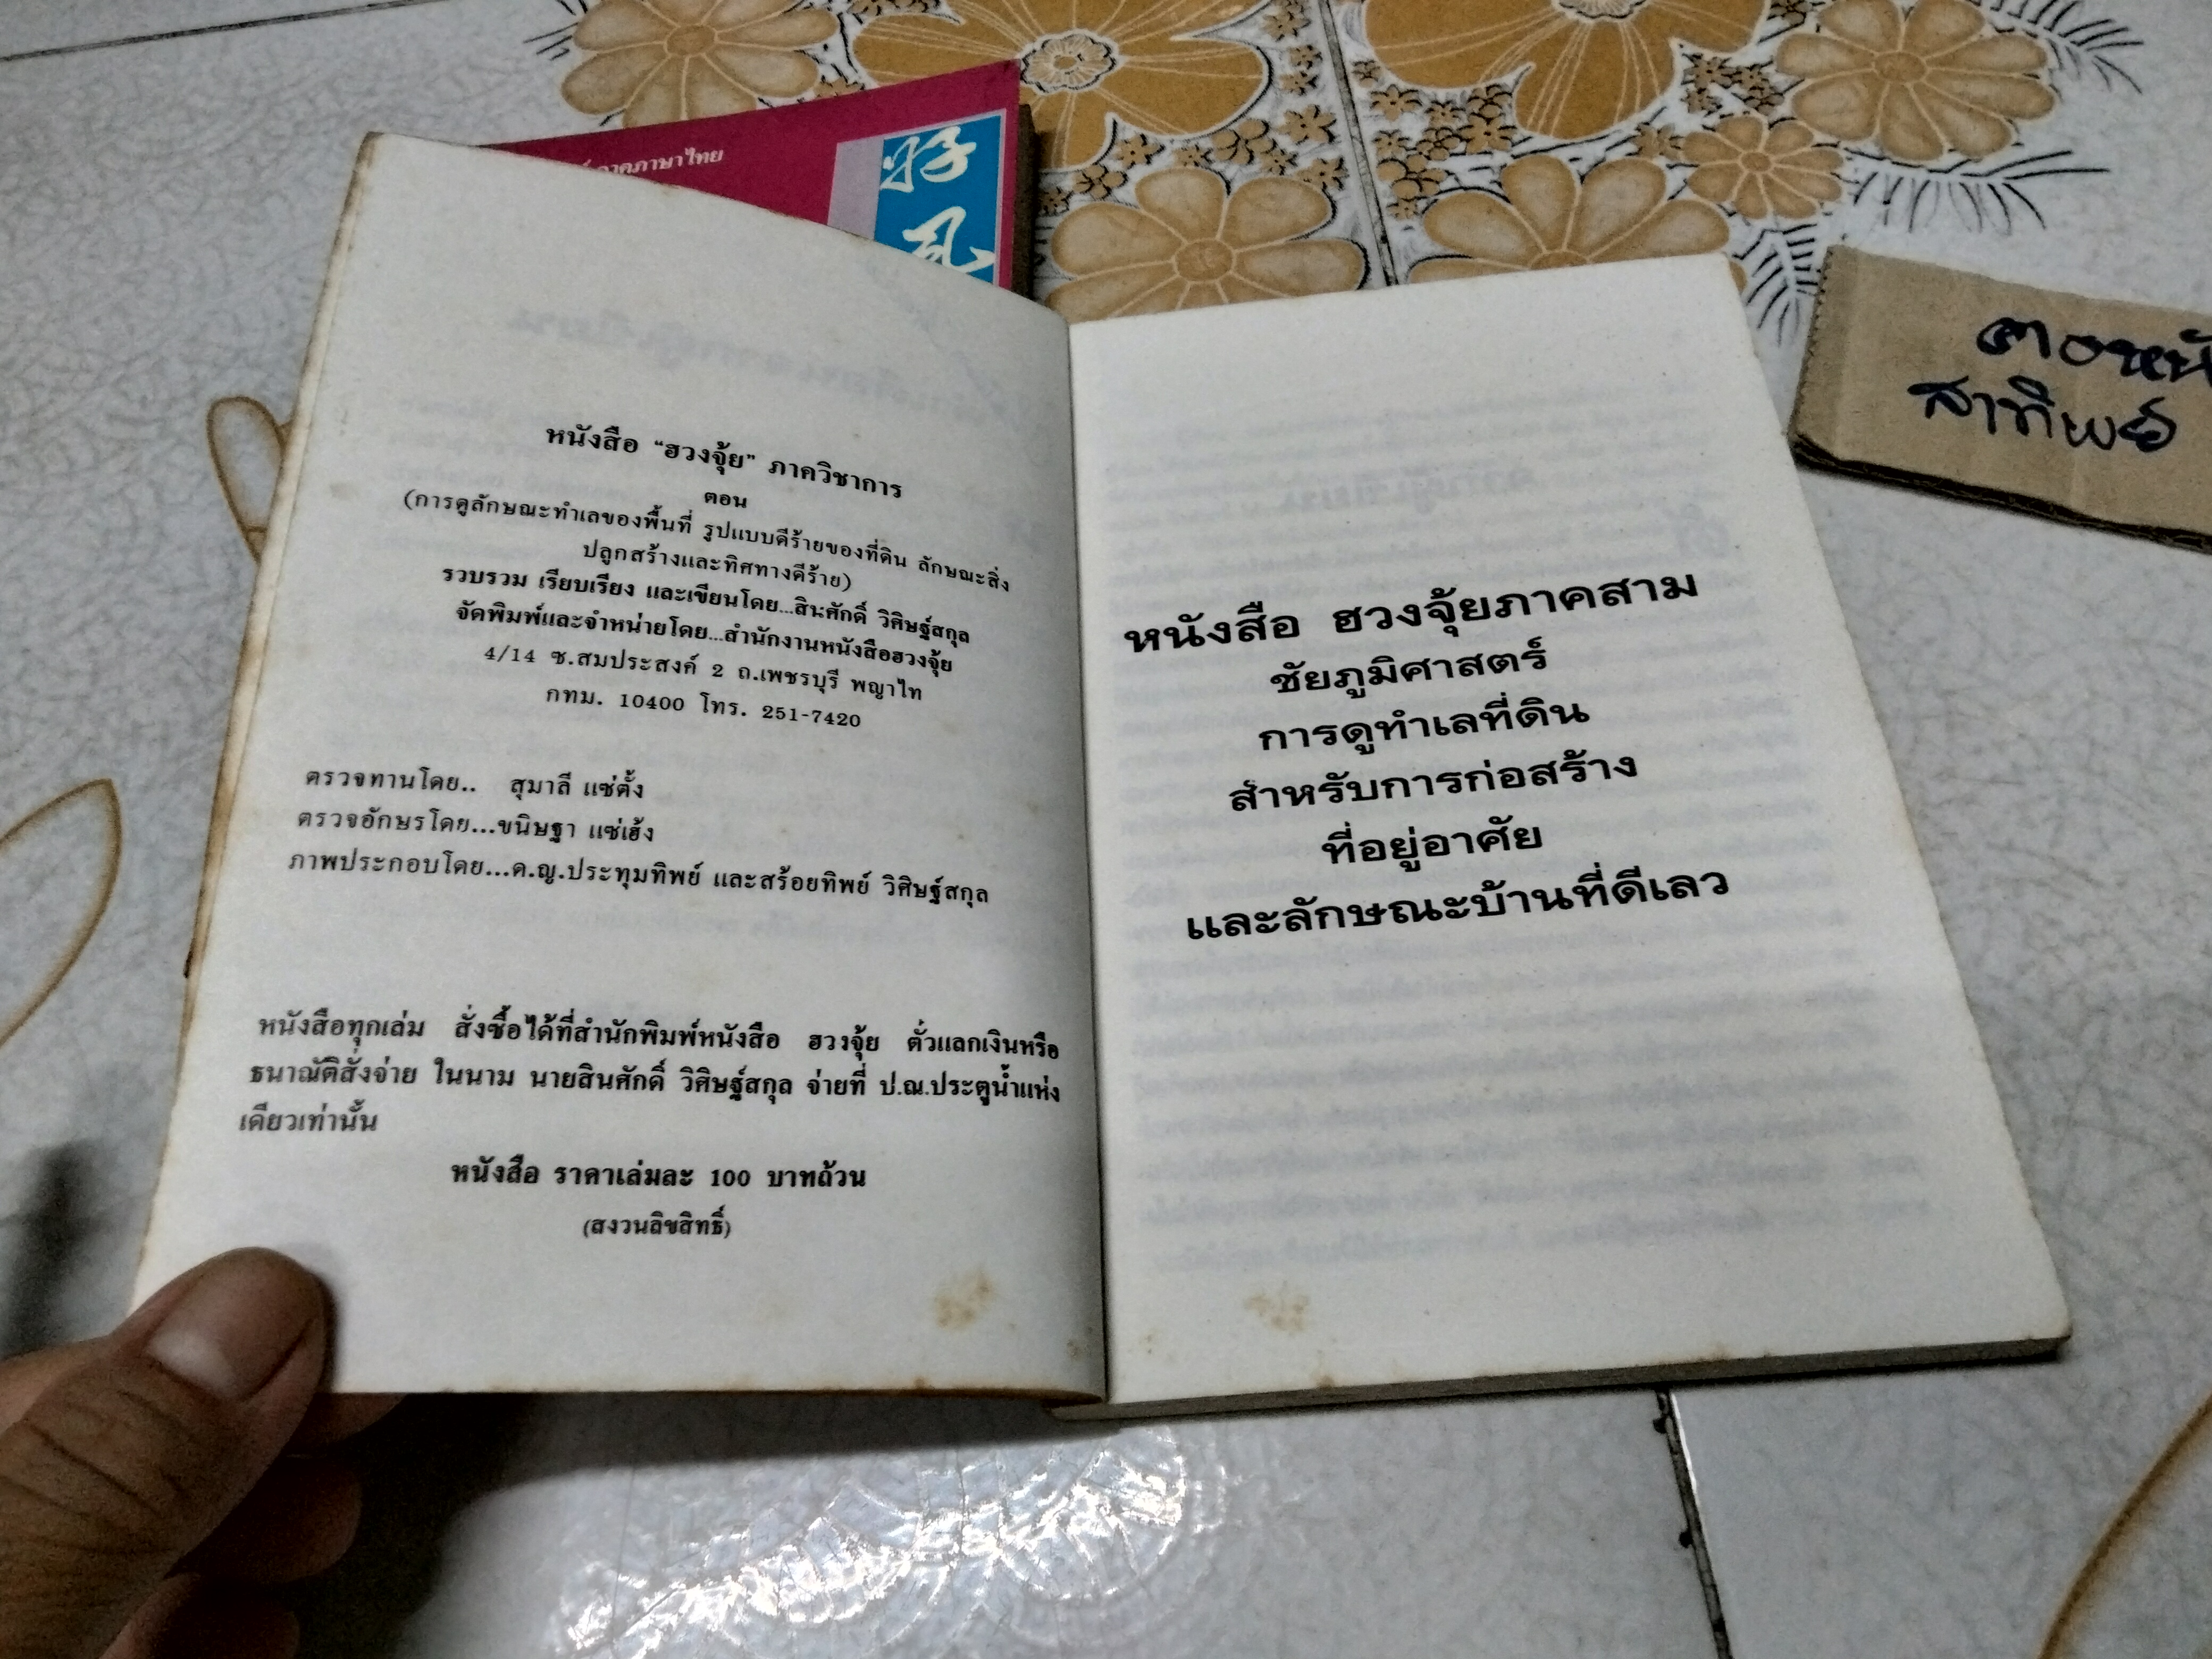 ภาคภาษาไทย
好
風
หนังสือ “ฮวงจุ้ย” ภาควิชาการ
ตอน
(การดูลักษณะทำเลของพื้นที่ รูปแบบดีร้ายของที่ดิน ลักษณะสิ่ง
ปลูกสร้างและทิศทางดีร้าย)
รวบรวม เรียบเรียง และเขียนโดย...สินศักดิ์ วิศิษฐ์สกุล
จัดพิมพ์และจำหน่ายโดย...สำนักงานหนังสือฮวงจุ้ย
4/14 ซ.สมประสงค์ 2 ถ.เพชรบุรี พญาไท
กทม. 10400 โทร. 251-7420
ตรวจทานโดย.. สุมาลี แซ่ตั้ง
ตรวจอักษรโดย...ขนิษฐา แซ่เฮ้ง
ภาพประกอบโดย...ด.ญ.ประทุมทิพย์ และสร้อยทิพย์ วิศิษฐ์สกุล
หนังสือทุกเล่ม สั่งซื้อได้ที่สำนักพิมพ์หนังสือ ฮวงจุ้ย ตั๋วแลกเงินหรือ
ธนาณัติสั่งจ่าย ในนาม นายสินศักดิ์ วิศิษฐ์สกุล จ่ายที่ ป.ณ.ประตูน้ำแห่ง
เดียวเท่านั้น
หนังสือ ราคาเล่มละ 100 บาทถ้วน
(สงวนลิขสิทธิ์)
หนังสือ ฮวงจุ้ยภาคสาม
ชัยภูมิศาสตร์
การดูทำเลที่ดิน
สำหรับการก่อสร้าง
ที่อยู่อาศัย
และลักษณะบ้านที่ดีเลว
สาทิพย์